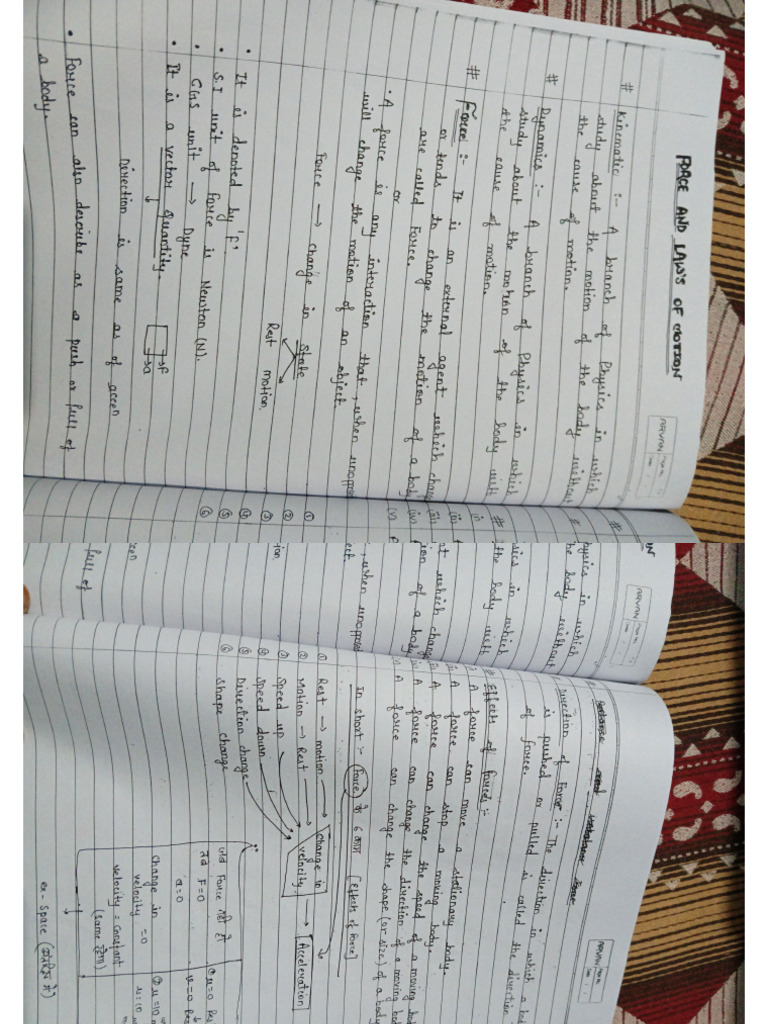 FORCE AND LAW'S OF MOTION
# Kinematic :- A branch of Physics in which
study about the motion of the body without
the cause of motion.
# Dynamics :- A branch of Physics in which
study about the motion of the body with
the cause of motion.
# Force :- It is an external agent which change
or tends to change the motion of a body
are called Force.
or
• A force is any interaction that, when unopposed
will change the motion of an object.
Force → change in State
Rest motion.
• It is denoted by 'F'
• S.I unit of Force is Newton (N).
• CGS unit → Dyne
• It is a vector quantity.
→F
→a
Direction is same as of accen
• Force can also describe as a push or full of
a body.
# Direction of Force :- The direction in which a bod
is pushed or pulled is called the direction
of force.
# Effects of Forces :-
i) A force can move a stationary body.
ii) A force can stop a moving body.
iii) A force can change the speed of a moving body
iv) A force can change the direction of a moving bod
v) A force can change the shape (or size) of a body
In short :- Force के 6 काम [effects of Force]
① Rest → motion
② Motion → Rest
③ Speed up
④ Speed down
⑤ Direction change
⑥ Shape change
change in
velocity
→ Acceleration
जब Force नहीं है
तब F=0
a=0
change in
velocity =0
velocity = constant
(same रहेगा)
① u=0 Res
v=0 Res
② u=10 m
v=10 m
ex - Space (अंतरिक्ष में)